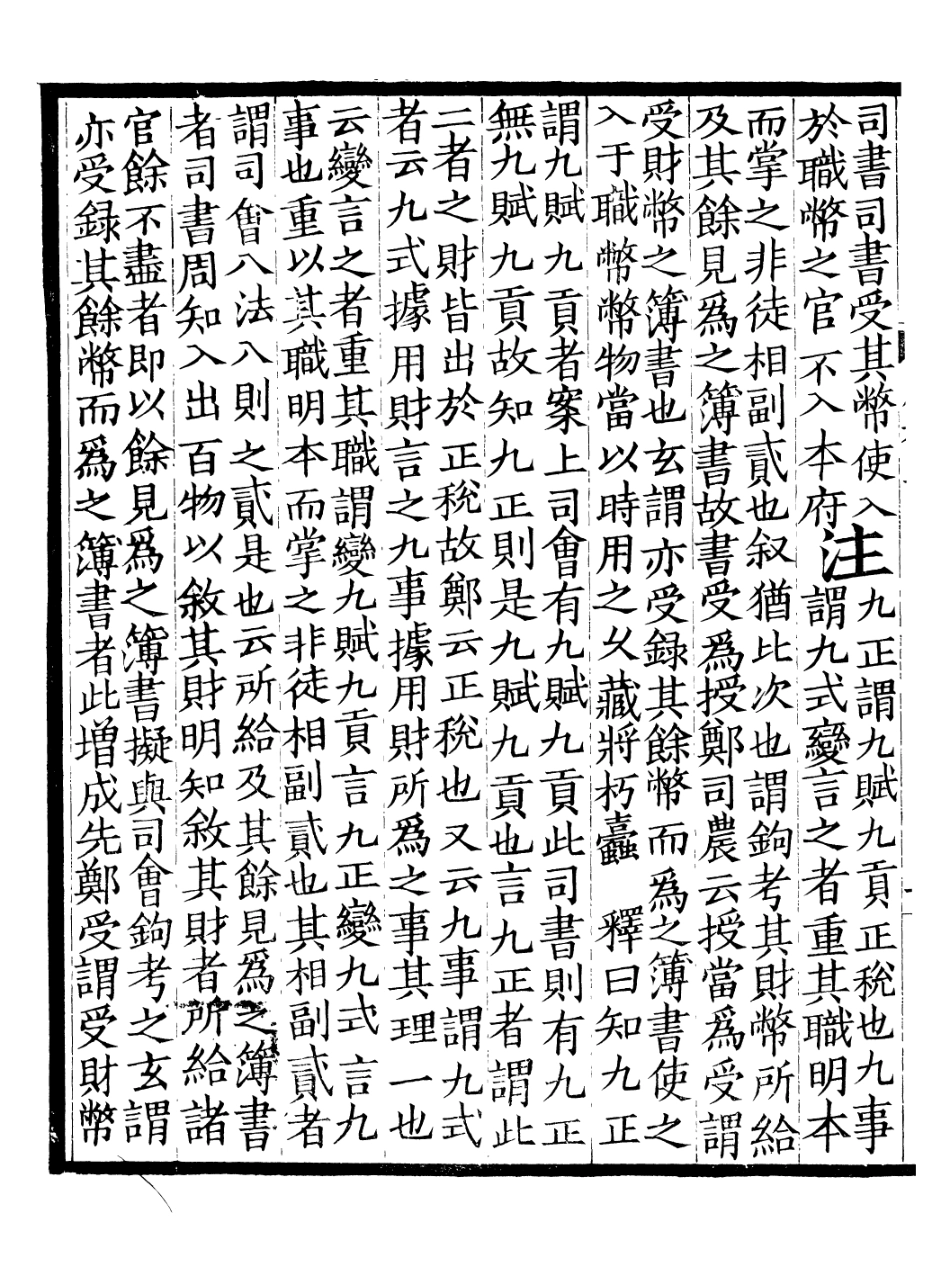 司書司書受其幣使入
於職幣之官不入本府
注
九正謂九賦九貢正稅也九事
謂九式變言之者重其職明本
而掌之非徒相副貳也叙猶比次也謂鉤考其財幣所給
及其餘見爲之簿書故書受爲授鄭司農云授當爲受謂
受財幣之簿書也玄謂亦受錄其餘幣而爲之簿書使之
入于職幣幣物當以時用之乆藏將朽蠹 釋曰知九正
謂九賦九貢者案上司會有九賦九貢此司書則有九正
無九賦九貢故知九正則是九賦九貢也言九正者謂此
二者之財皆出於正稅故鄭云正稅也又云九事謂九式
者云九式據用財言之九事據用財所爲之事其理一也
云變言之者重其職謂變九賦九貢言九正變九式言九
事也重以其職明本而掌之非徒相副貳也其相副貳者
謂司會八法八則之貳是也云所給及其餘見爲之簿書
者司書周知入出百物以敘其財明知敘其財者所給諸
官餘不盡者即以餘見爲之簿書擬與司會鉤考之玄謂
亦受錄其餘幣而爲之簿書者此增成先鄭受謂受財幣